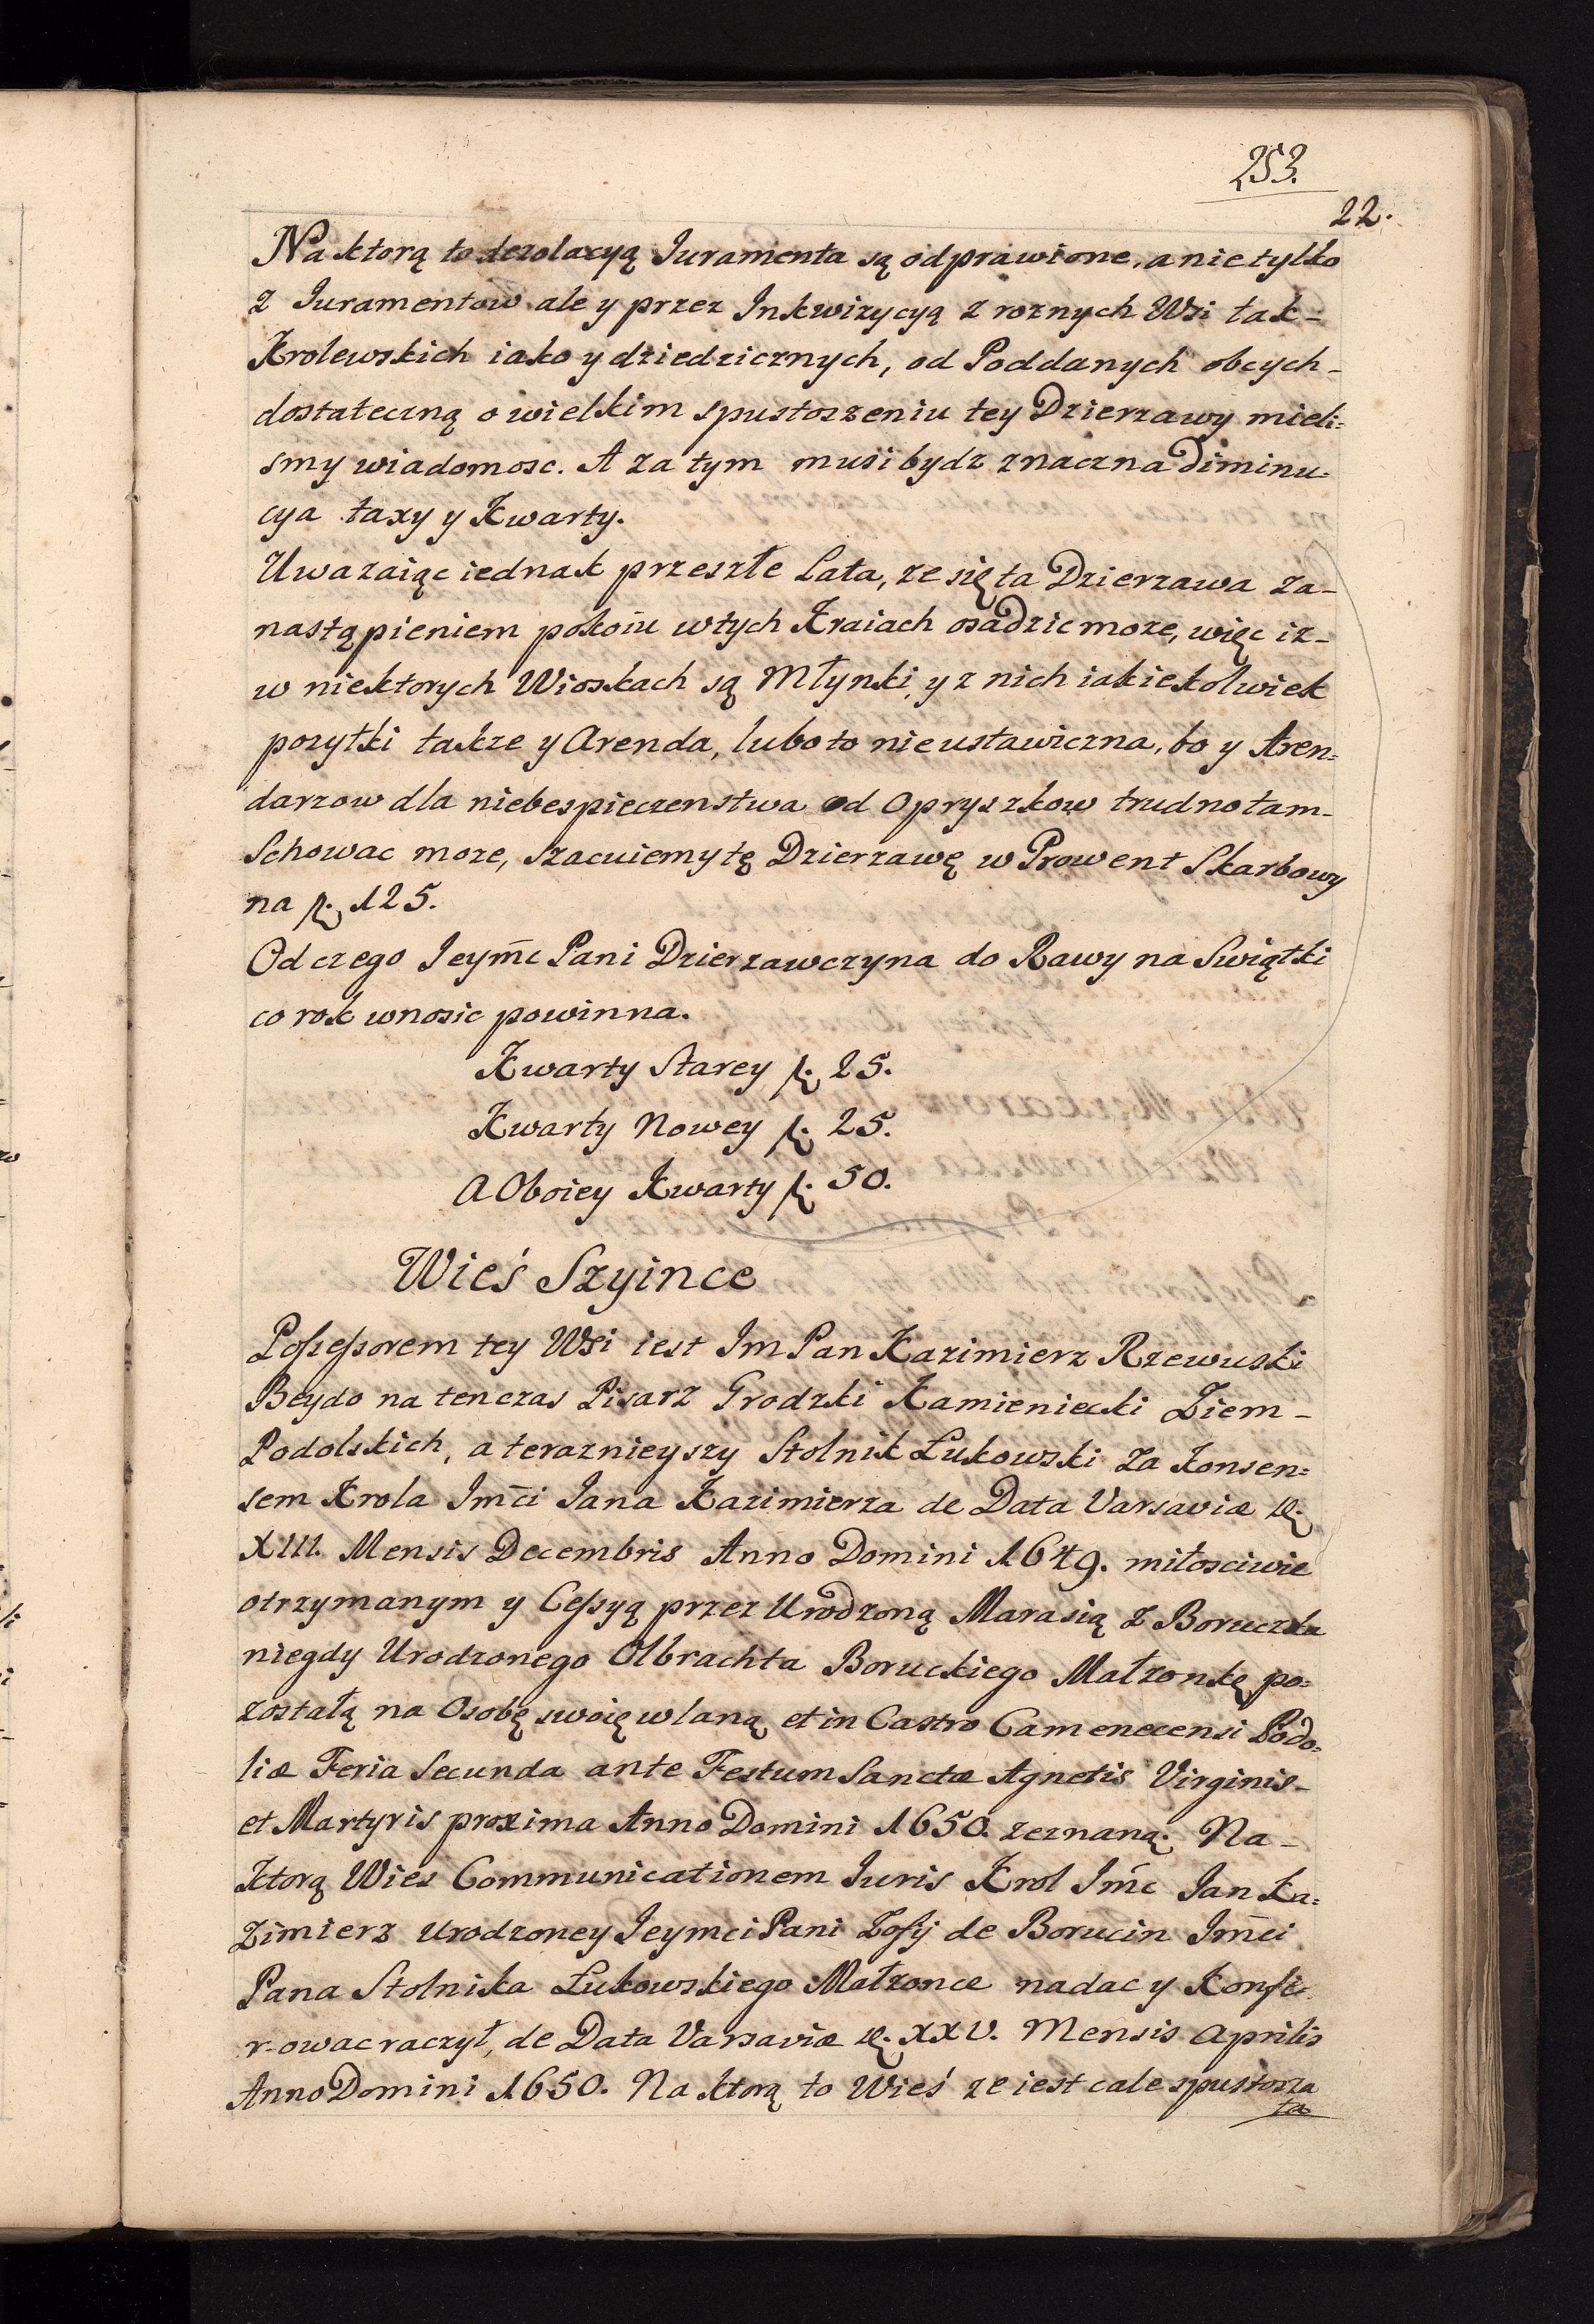 253.
22.
Na ktorą to dezolacyą Juramenta są odprawione, a nie tylko
z Juramentow ale y przez Inkwizycyą z roznych Wsi tak-
Krolewskich iako y dziedzicznych, od Poddanych obcych-
dostateczną o wielkim spustoszeniu tey Dzierzawy mieli=
smy wiadomosc. A za tym musi bydz znaczna Diminu-
cya taxy y Kwarty.
Uwazaiąc iednak przeszłe Lata, ze się ta Dzierzawa za-
nastąpieniem pokoiu w tych Kraiach osadzic moze, więc iz-
w niektorych Wioskach są Młynki, y z nich iakiekolwiek
pozytki takze y Arenda, lubo to nie ustawiczna, bo y Aren=
darzow dla niebespieczenstwa od Opryszkow trudno tam-
Schowac moze, szacuiemy tę Dzierzawę w Prowent Skarbowy
na f. 125.
Od czego Jeymc Pani Dzierzawczyna do Rawy na Swiątki
co rok wnosic powinna.
Kwarty Starey f. 25.
Kwarty Nowey f. 25.
A Oboiey Kwarty f. 50.
Wieś Szyince
Possessorem tey Wsi iest Im Pan Kazimierz Rzewuski
Beydo na tenczas Pisarz Grodzki Kamieniecki Ziem-
Podolskich, a teraznieyszy Stolnik Łukowski za Konsen=
sem Krola Imci Jana Kazimierza de Data Varsaviæ
XIII. Mensis Decembris Anno Domini 1649. miłosciwie
otrzymanym y Cessyą przez Urodzoną Marasią z Boruczka
niegdy Urodzonego Olbrachta Boruckiego Małzonkę po=
zostałą na Osobę swoię wlaną et in Castro Camenecensi Podo=
liæ Feria Secunda ante Festum Sanctæ Agnetis Virginis-
et Martyris proxima Anno Domini 1650. zeznaną. Na-
Ktorą Wies Communicationem Juris Krol Imc Jan Ka=
zimierz Urodzoney Jeymci Pani Zofij de Borucin Imci
Pana Stolnika Łukowskiego Małzonce nadac y Konfe
rowac raczył, de Data Varsaviæ XXV. Mensis Aprilis
Anno Domini 1650. Na ktorą to Wieś ze iest cale spustosza
ła